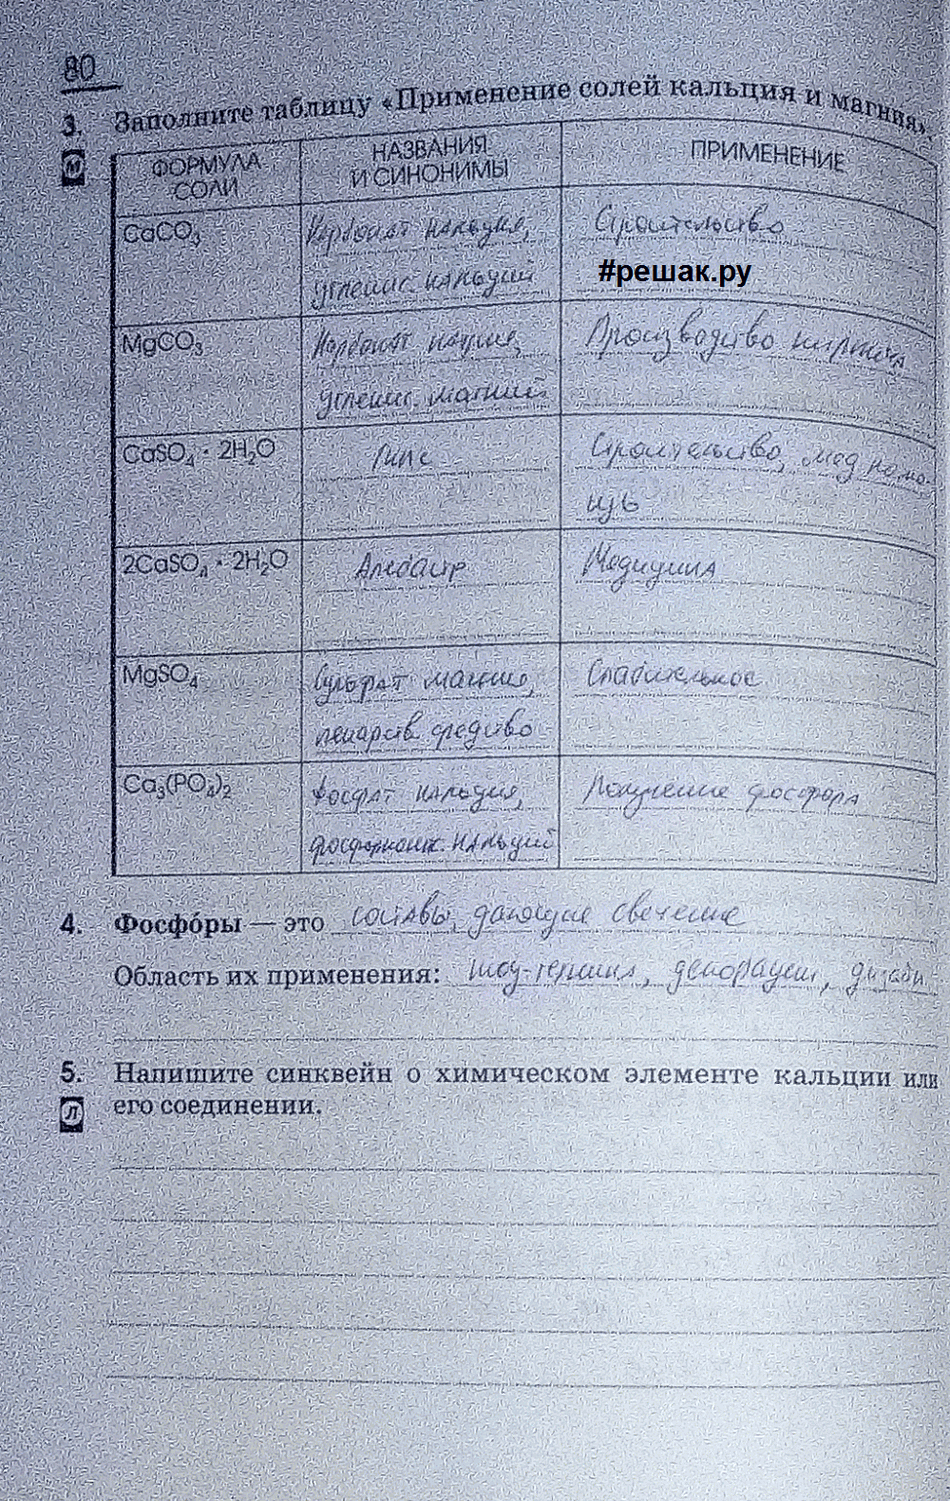 80
3. Заполните таблицу «Применение солей кальция и магния».
М
ФОРМУЛА СОЛИ
НАЗВАНИЯ И СИНОНИМЫ
ПРИМЕНЕНИЕ
CaCO₃
Карбонат кальция,
углекис кальций
Строительство
#решак.ру
MgCO₃
Карбонат магния,
углекис. магний
Производство кирпича
CaSO₄ · 2H₂O
Гипс
Строительство, мед помо-
щь
2CaSO₄ · 2H₂O
Алебастр
Медицина
MgSO₄
Сульфат магния,
лекарств. средство
Слабительное
Ca₃(PO₄)₂
Фосфат кальция,
кальций
Получение фосфора
4. Фосфо́ры — это составы, дающие свечение
Область их применения: декорации, дизайн
5. Напишите синквейн о химическом элементе кальции или
Л
его соединении.